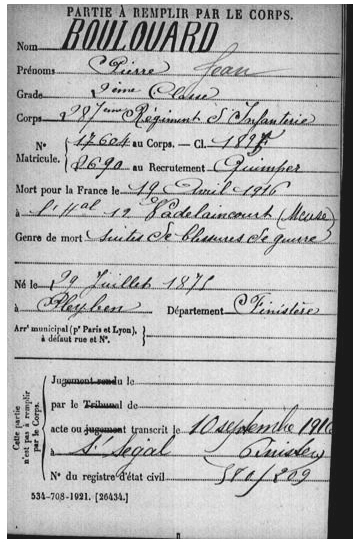 PARTIE À REMPLIR PAR LE CORPS.
Nom BOULOUARD
Prénoms Pierre Jean
Grade 2ème Classe
Corps 287ème Régiment d'Infanterie
N° Matricule. { 17604 au Corps. — Cl. 1895
8690 au Recrutement Quimper
Mort pour la France le 19 Avril 1916
à l'Hal 12 Vadelaincourt (Meuse)
Genre de mort suites de blessures de guerre
Né le 29 Juillet 1875
à Pleyben Département Finistère
Arrt municipal (pr Paris et Lyon), à défaut rue et N°.
Cette partie n'est pas à remplir par le Corps.
Jugement rendu le
par le Tribunal de
acte ou jugement transcrit le 10 septembre 1916
à St Ségal Finistère
N° du registre d'état civil 570/209
534-708-1921. [26434.]